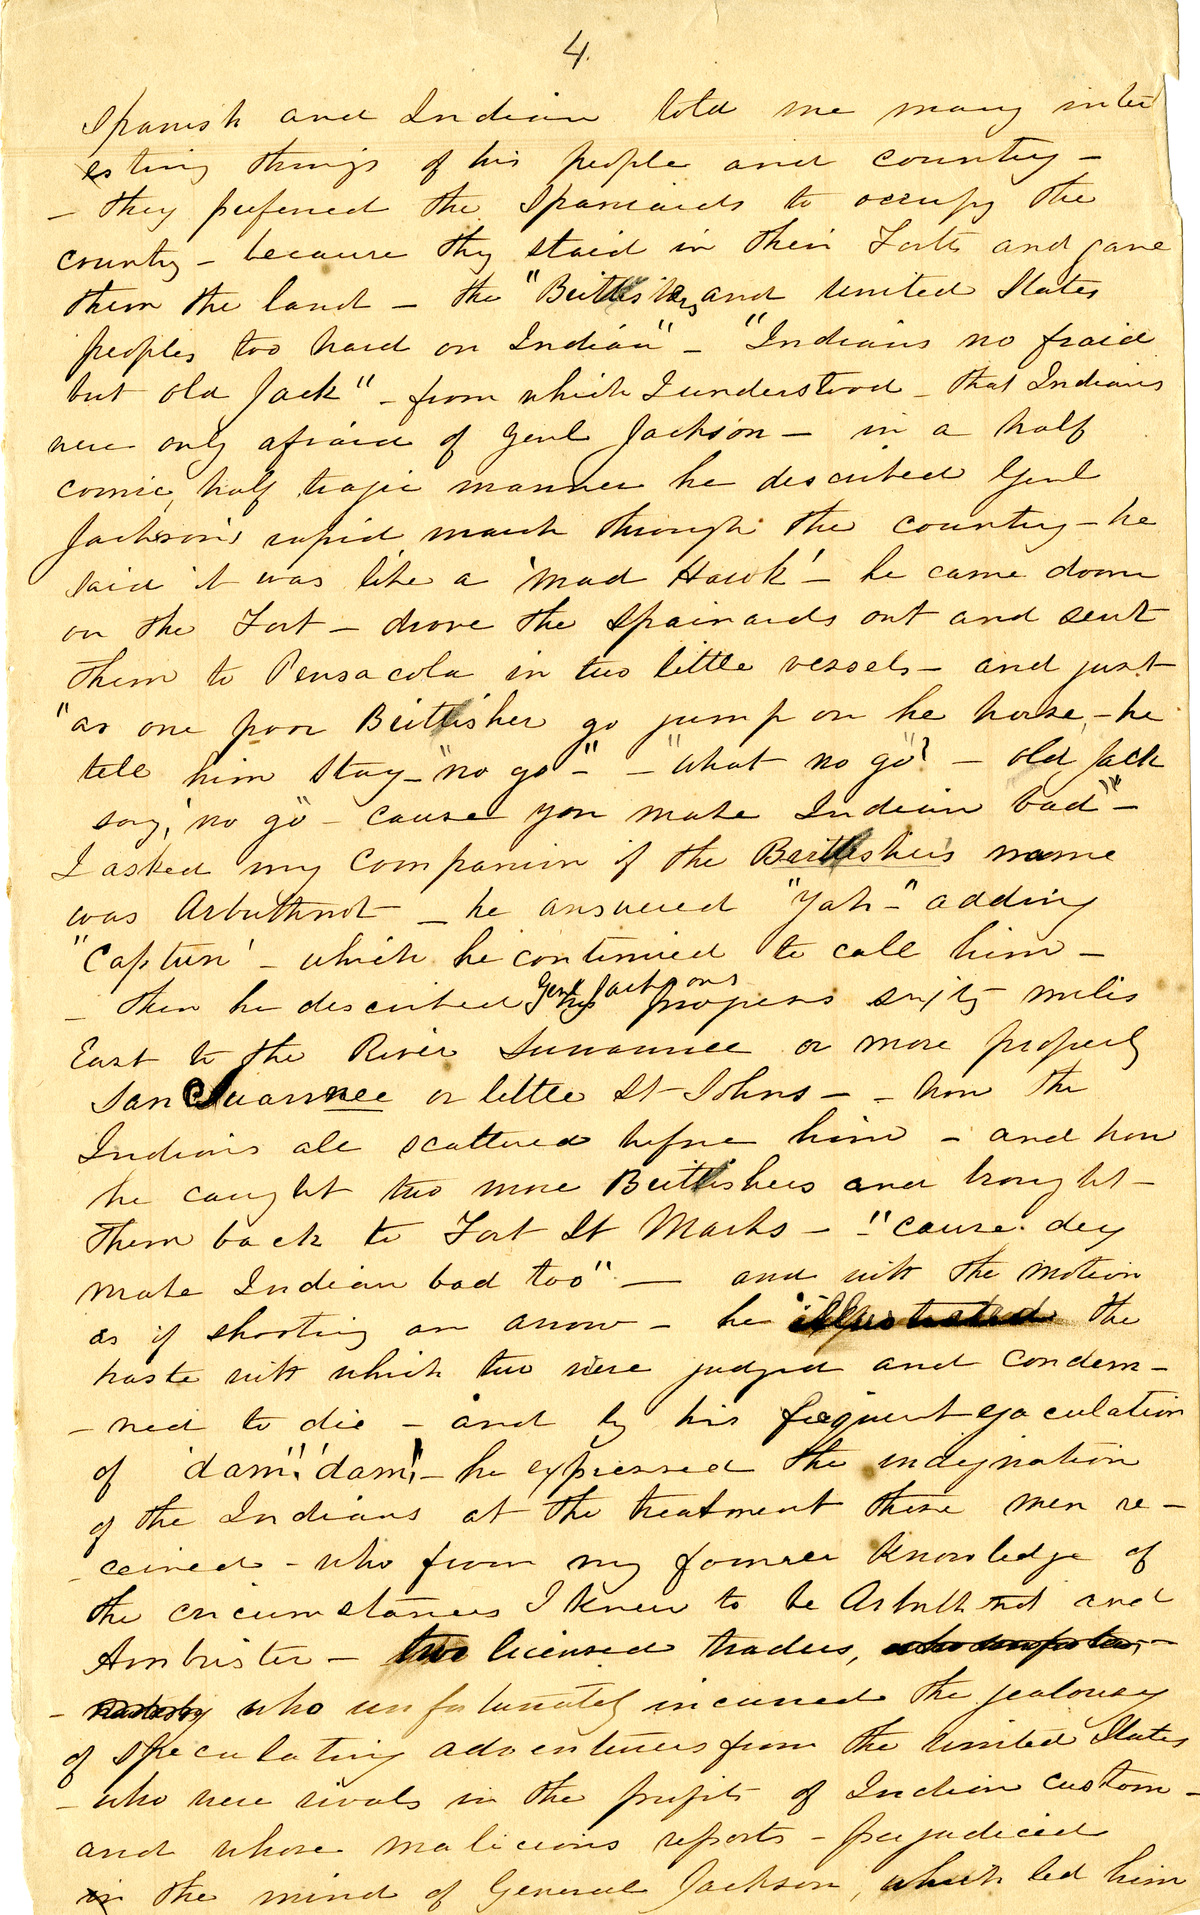 4.
Spanish and Indian told me many inter
esting things of his people and country –
– they preferred the Spaniards to occupy the
country – because they staid in their Forts and gave
them the land – the "Brittishers and United States
peoples too hard on Indian" – "Indians no fraid
but old Jack" – from which I understood – that Indians
were only afraid of Genl Jackson – in a half
comic, half tragic manner he described Genl
Jackson's rapid march through the country – he
said it was like a 'mad Hawk' – he came down
on the Fort – drove the Spainards out and sent
them to Pensacola in two little vessels – and just
"as one poor Brittisher go jump on he horse, – he
tell him stay – "no go –" – "what no go"? – old Jack
say, 'no go" – cause you make Indian bad" –
I asked my companion if the Brittishers name
was Arbuthnot – he answered "Yah –" adding
"Captun' – which he continued to call him –
– then he described Genl Jacksons progress sixty miles
East to the River Suwannee or more properly
San Juannee or little St Johns – – how the
Indians all scattered before him – and how
he caught two more Brittishers and brought –
them back to Fort St Marks – "cause dey
make Indian bad too" – and with the motion
as if shooting an arrow – he illustrated the
haste with which two were judged and condem –
– ned to die – and by his frequent ejaculation
of 'dam", 'dam", – he expressed the indignation
of the Indians at the treatment these men re –
– ceived – who from my former knowledge of
the circumstances I knew to be Arbuthnot and
Ambrister – two licensed traders,
– who unfortunately incurred the jealousy
of speculating adventurers from the United States
– who were rivals in the profits of Indian custom –
and whose malicious reports – prejudiced
in the mind of General Jackson, which led him